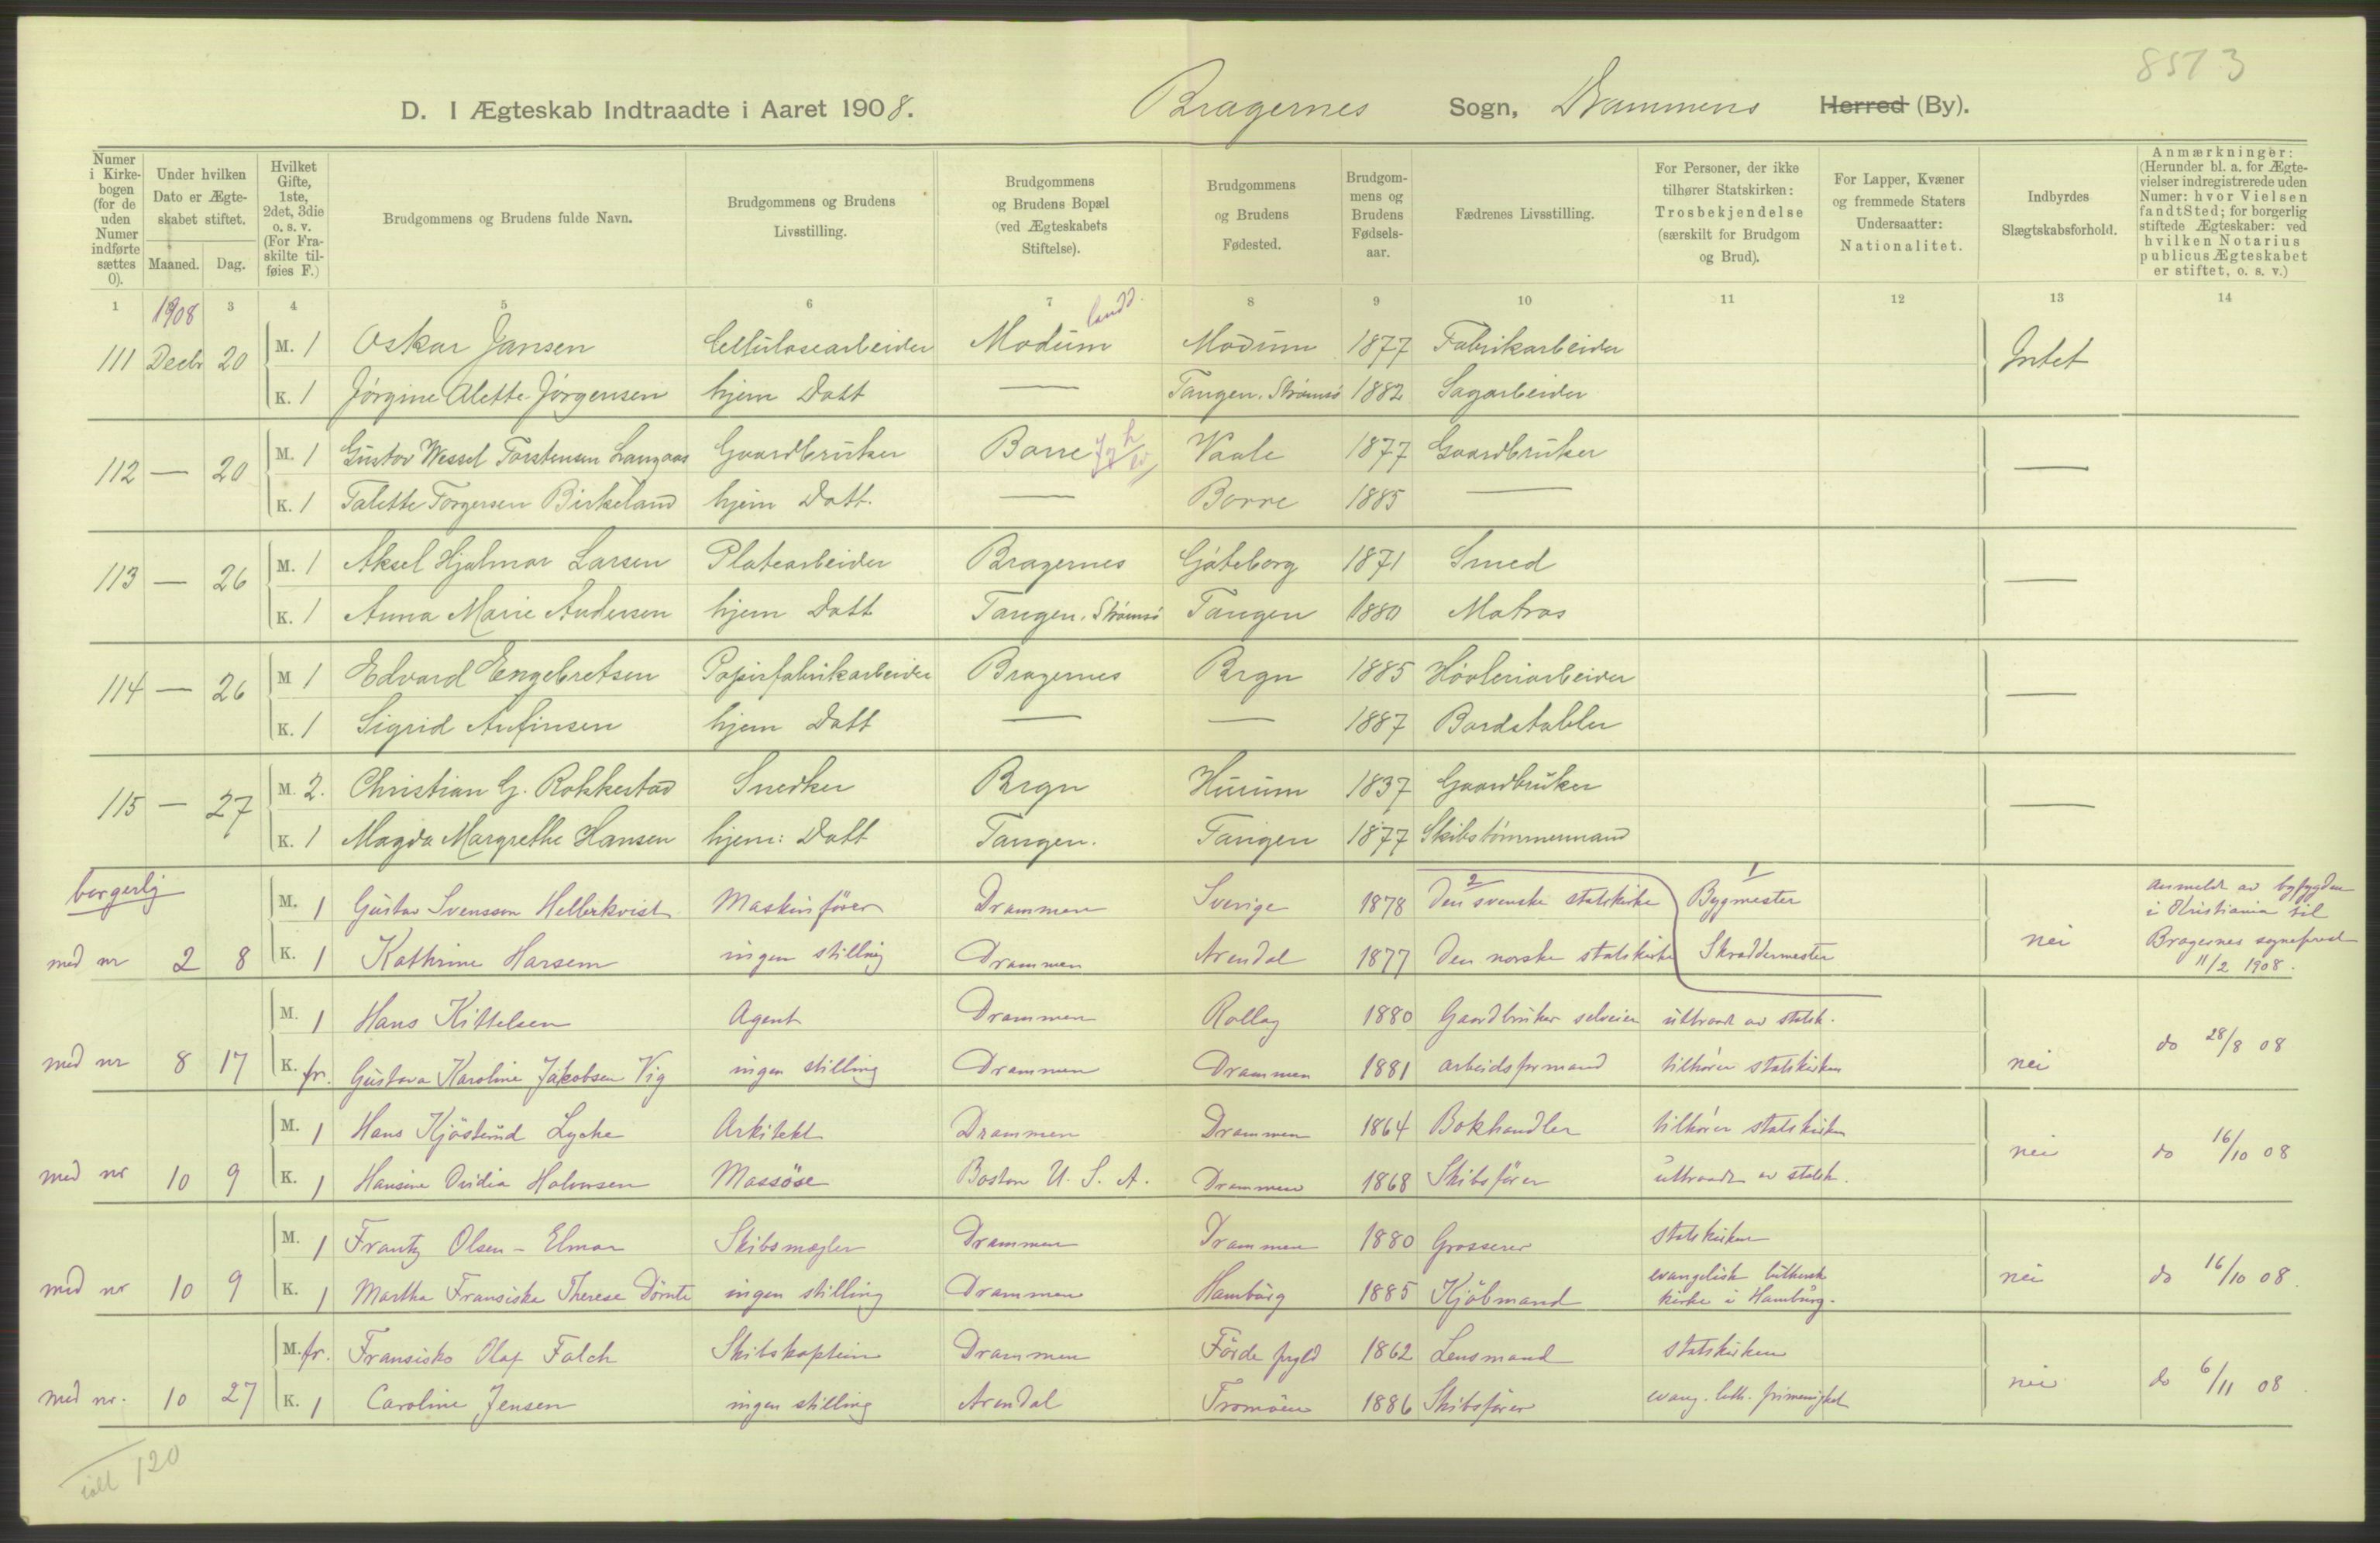 8513
D. I Ægteskab Indtraadte i Aaret 1908. Bragernes Sogn, Drammens Herred (By).
Numer i Kirkebogen (for de uden Numer indførte sættes 0).
Under hvilken Dato er Ægteskabet stiftet.
Maaned. Dag.
Hvilket Gifte, 1ste, 2det, 3die o. s. v. (For Fraskilte tilføies F.)
Brudgommens og Brudens fulde Navn.
Brudgommens og Brudens Livsstilling.
Brudgommens og Brudens Bopæl (ved Ægteskabets Stiftelse).
Brudgommens og Brudens Fødested.
Brudgommens og Brudens Fødselsaar.
Fædrenes Livsstilling.
For Personer, der ikke tilhører Statskirken: Trosbekjendelse (særskilt for Brudgom og Brud).
For Lapper, Kvæner og fremmede Staters Undersaatter: Nationalitet.
Indbyrdes Slægtskabsforhold.
Anmærkninger: (Herunder bl. a. for Ægtevielser indregistrerede uden Numer: hvor Vielsen fandt Sted; for borgerlig stiftede Ægteskaber: ved hvilken Notarius publicus Ægteskabet er stiftet, o. s. v.)
1 3 4 5 6 7 8 9 10 11 12 13 14
1908
111 Decbr 20 M. 1 Oskar Jansen Cellulosearbeider Modum landd. Modum 1877 Fabrikarbeider Intet
K. 1 Jørgine Alette Jørgensen hjem Datt — Tangen. Strømsø 1882 Sagarbeider
112 — 20 M. 1 Gustav Wessel Torstensen Langaas Gaardbruker Borre Vaale 1877 Gaardbruker —
K. 1 Talette Torgersen Birkeland hjem Datt. — Borre 1885 —
113 — 26 M. 1 Aksel Hjalmar Larsen Platearbeider Bragernes Gøteborg 1871 Smed —
K. 1 Anna Marie Andersen hjem Datt Tangen. Strømsø Tangen 1880 Matros
114 — 26 M 1 Edvard Engebretsen Papirfabrikarbeider Bragernes Brgn 1885 Høvleriarbeider —
K. 1 Sigrid Anfinsen hjem Datt — — 1887 Bordstabler
115 — 27 M. 2. Christian G. Rokkestad Snedker Brgn Hurum 1837 Gaardbruker —
K. 1 Magda Margrethe Hansen hjem: Datt Tangen. Tangen 1877 Skibstømmermand
borgerlig M. 1 Gustav Svensson Hellerkvist Maskinfører Drammen Sverige 1878 2 Den svenske statskirke 1 Bygmester
med nr 2 8 K. 1 Kathrine Harsem ingen stilling Drammen Arendal 1877 Den norske statskirke Skræddermester nei
Anmeldt av byfogden
i Kristiania til
Bragernes sogneprest
11/2 1908.
M. 1 Hans Kittelsen Agent Drammen Rollag 1880 Gaardbruker selveier uttraadt av statsk.
med nr 8 17 K. fr. Gustava Karoline Jakobsen Vig ingen stilling Drammen Drammen 1881 arbeidsformand tilhører statskirken nei do 28/8 08
M. 1 Hans Kjösterud Lyche Arkitekt Drammen Drammen 1864 Bokhandler tilhører statskirken
med nr 10 9 K. 1 Hansine Ovidia Halvorsen Massöse Boston U. S. A. Drammen 1868 Skibsfører uttraadt av statsk. nei do 16/10 08
M. 1 Frantz Olsen - Elmar Skibsmægler Drammen Drammen 1880 Grosserer statskirken
med nr 10 9 K. 1 Martha Fransiska Therese Dörnte ingen stilling Drammen Hamburg 1885 Kjöbmand evangelisk luthersk kirke i Hamburg. nei do 16/10 08.
M. fr. Fransisko Olaf Falch Skibskaptein Drammen Förde 1862 Lensmand statskirken
med nr. 10 27 K. 1 Caroline Jensen ingen stilling Arendal Tromöen 1886 Skibsfører evang. luth. frimenighet nei do 6/11 08
ialt 120